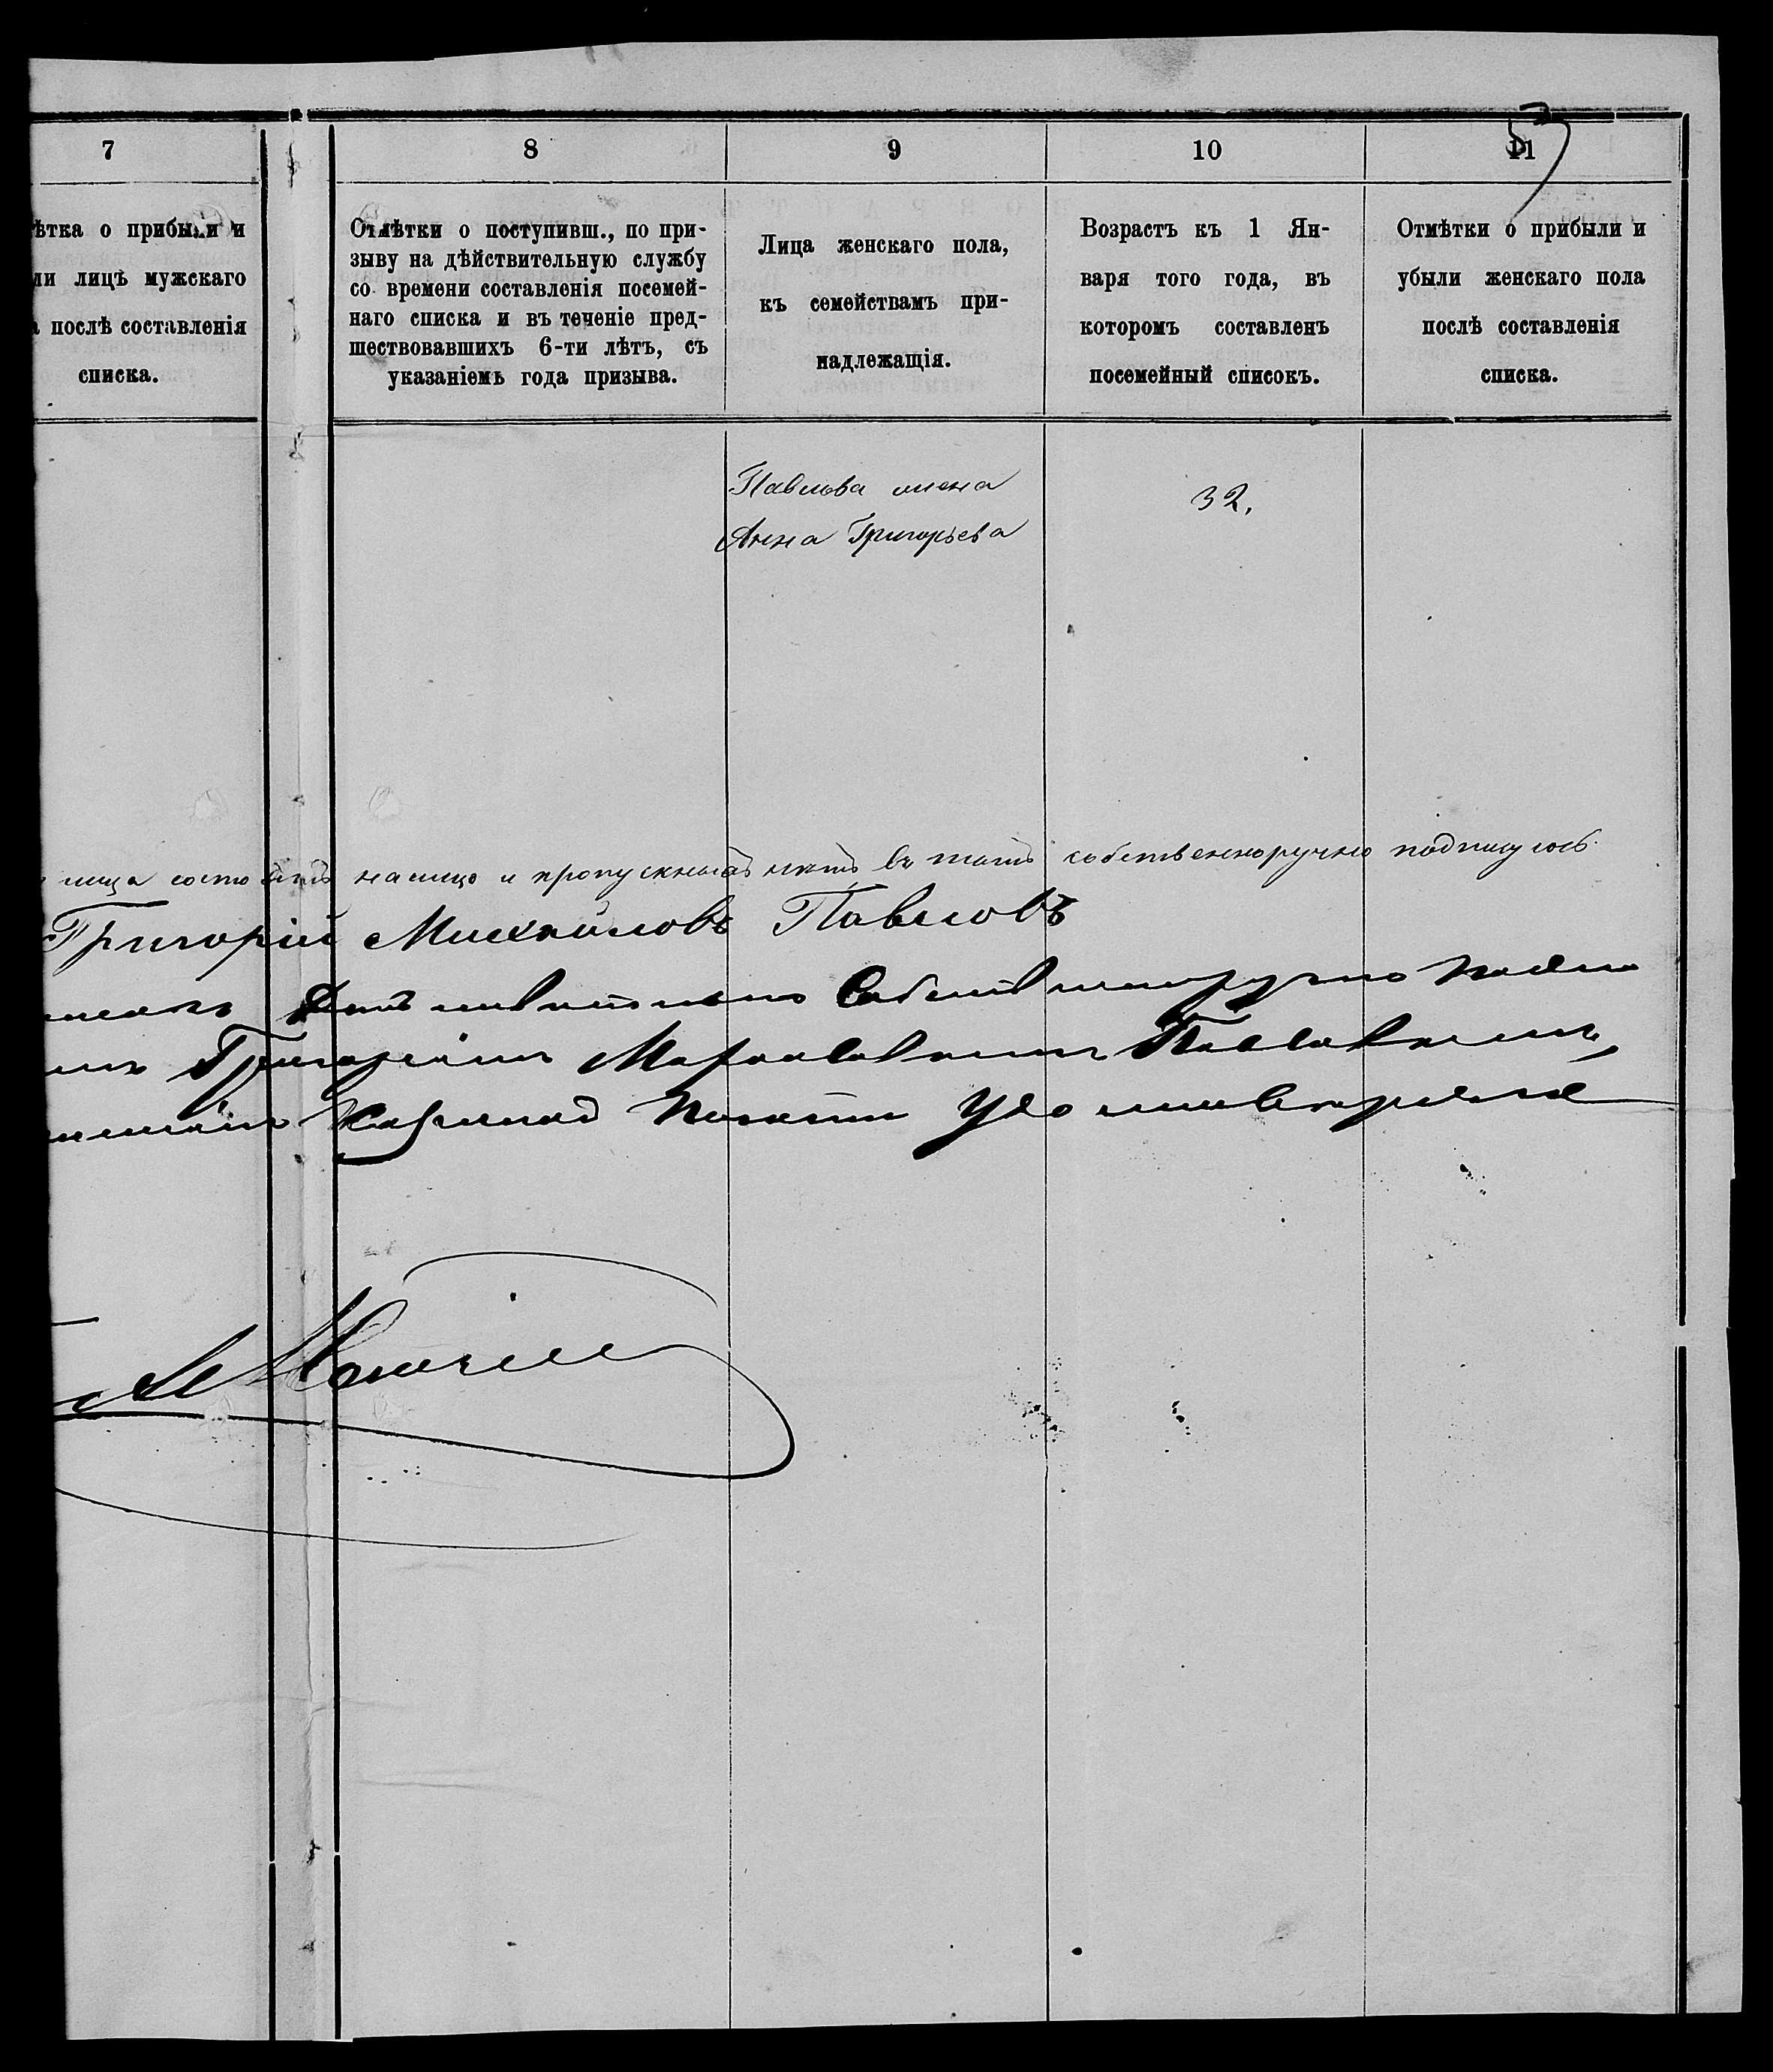 7
8
9
10
11
57
ѣтка о прибыли и
ли лицъ мужскаго
а послѣ составленія
списка.
Отмѣтки о поступивш., по при-
зыву на дѣйствительную службу
со времени составленія посемей-
наго списка и въ теченіе пред-
шествовавшихъ 6-ти лѣтъ, съ
указаніемъ года призыва.
Лица женскаго пола,
къ семействамъ при-
надлежащія.
Возрастъ къ 1 Ян-
варя того года, въ
которомъ составленъ
посемейный списокъ.
Отмѣтки о прибыли и
убыли женскаго пола
послѣ составленія
списка.
Павлова жена
32.
Анна Григорьева
лица состоятъ налицо и пропускныхъ нѣтъ въ томъ собственноручно подпишусь
Григорій Михайловъ Павловъ
Собственноручно
Григоріемъ Павловымъ,